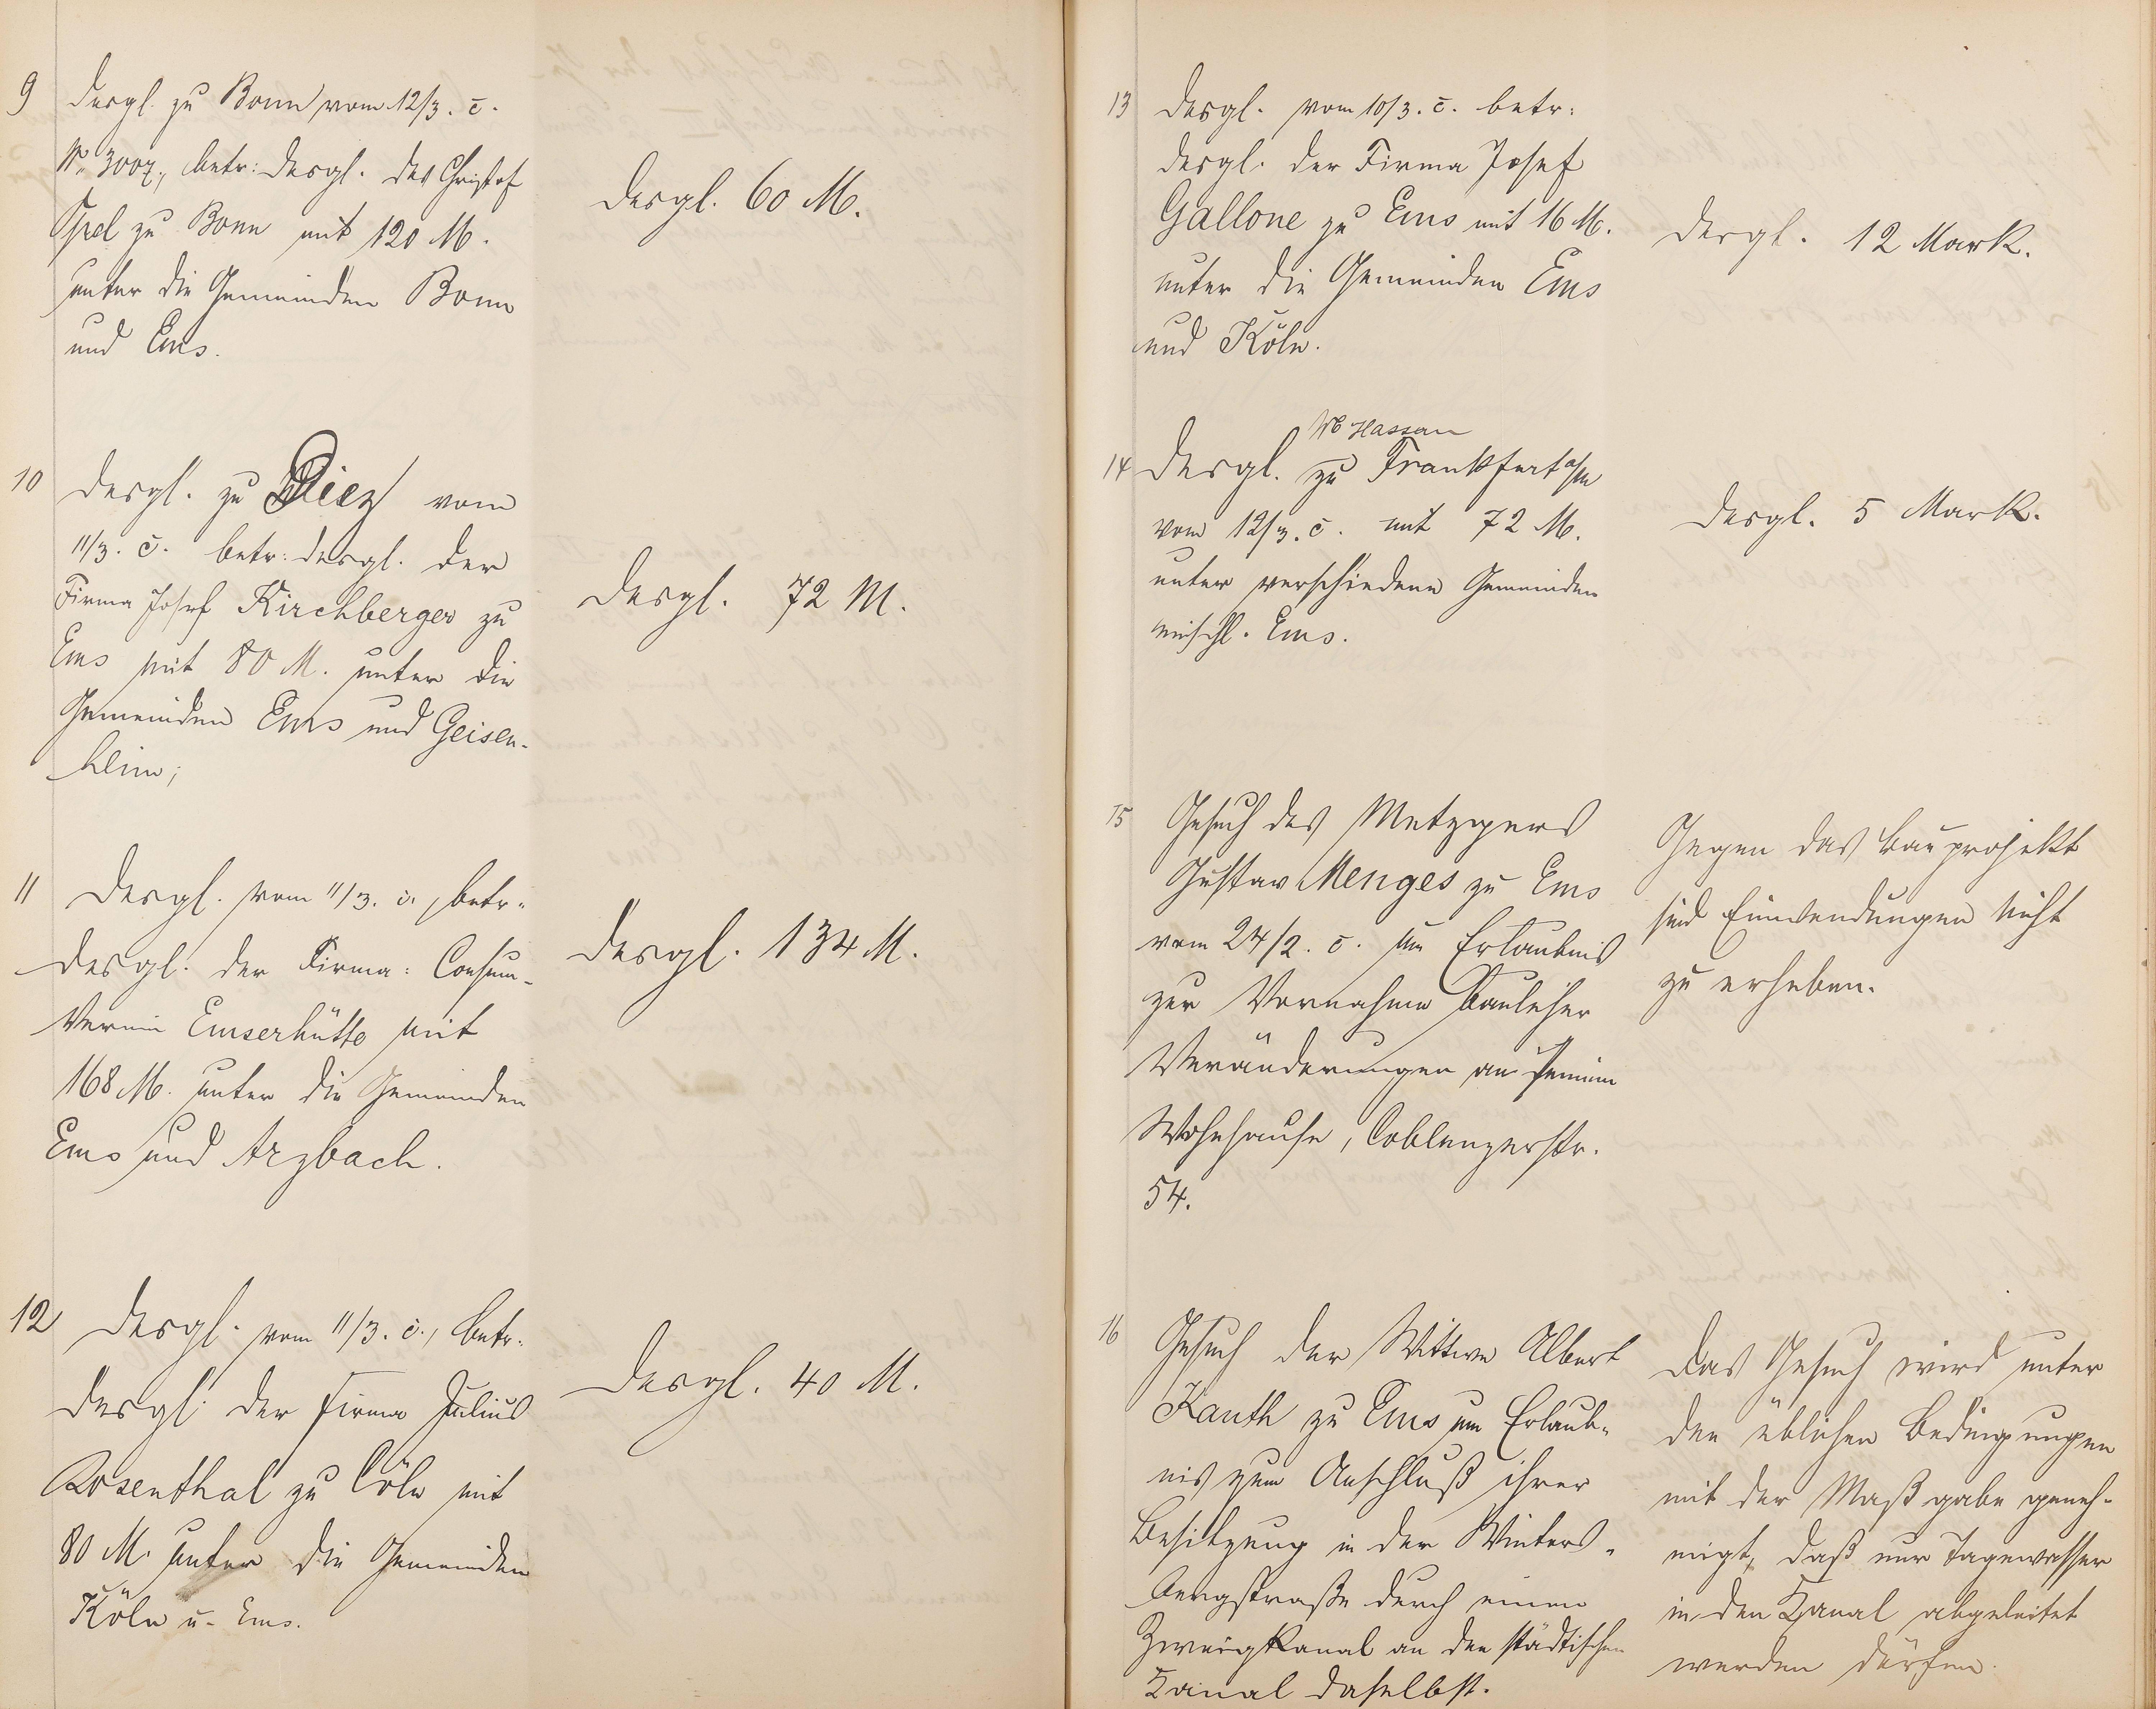 9 desgl. zu Bonn vom 12/3. c.
No 3007, betr: desgl. des Christof
zu Bonn mit 120 M.
unter die Gemeinden Bonn
und Ems.
desgl. 60 M.
10 desgl. zu Diez vom
11/3. c. betr: desgl. der
Firma Josef Kirchberger zu
Ems mit 80 M. unter die
Gemeinden Ems und Geisen-
heim;
desgl. 72 M.
11 desgl. vom 11/3. c., betr.
desgl. der Firma: Consum-
Verein Emserhütte mit
168 M. unter die Gemeinden
Ems und Arzbach.
desgl. 134 M.
12 desgl. vom 11/3. c., betr.
desgl. der Firma Julius
Rosenthal zu Cöln mit
80 M. unter die Gemeinden
Köln u. Ems.
desgl. 40 M.
13 desgl. vom 10/3. c. betr:
desgl. der Firma Josef
Gallone zu Ems mit 16 M.
unter die Gemeinden Ems
und Köln.
desgl. 12 Mark.
Hassan
14 desgl. zu Frankfurt a/m
vom 12/3. c. mit 72 M.
unter verschiedene Gemeinden
einschl. Ems.
desgl. 5 Mark.
15 Gesuch des Metzgers
Gustav Menges zu Ems
vom 24/2. c. um Erlaubnis
zur Vornahme baulicher
Veränderungen an seinem
Wohnhause, Coblenzerstr.
54.
Gegen das Bauprojekt
sind Einwendungen nicht
zu erheben.
16 Gesuch der Wittwe Albert
Kauth zu Ems um Erlaub-
nis zum Anschluß ihrer
Besitzung in der Winters-
bergstraße durch einen
Zweigkanal an den städtischen
Kanal daselbst.
Das Gesuch wird unter
den üblichen Bedingungen
mit der Maßgabe geneh-
migt, daß nur Tagewasser
in den Kanal abgeleitet
werden dürfen.